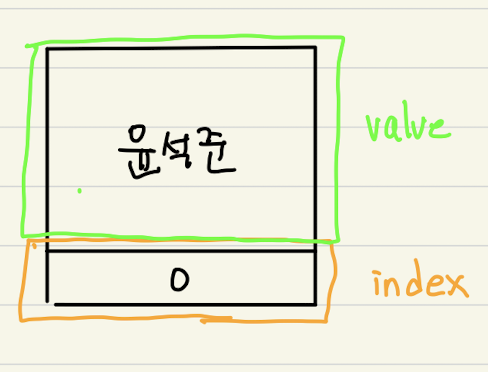 윤석준
value
0
index